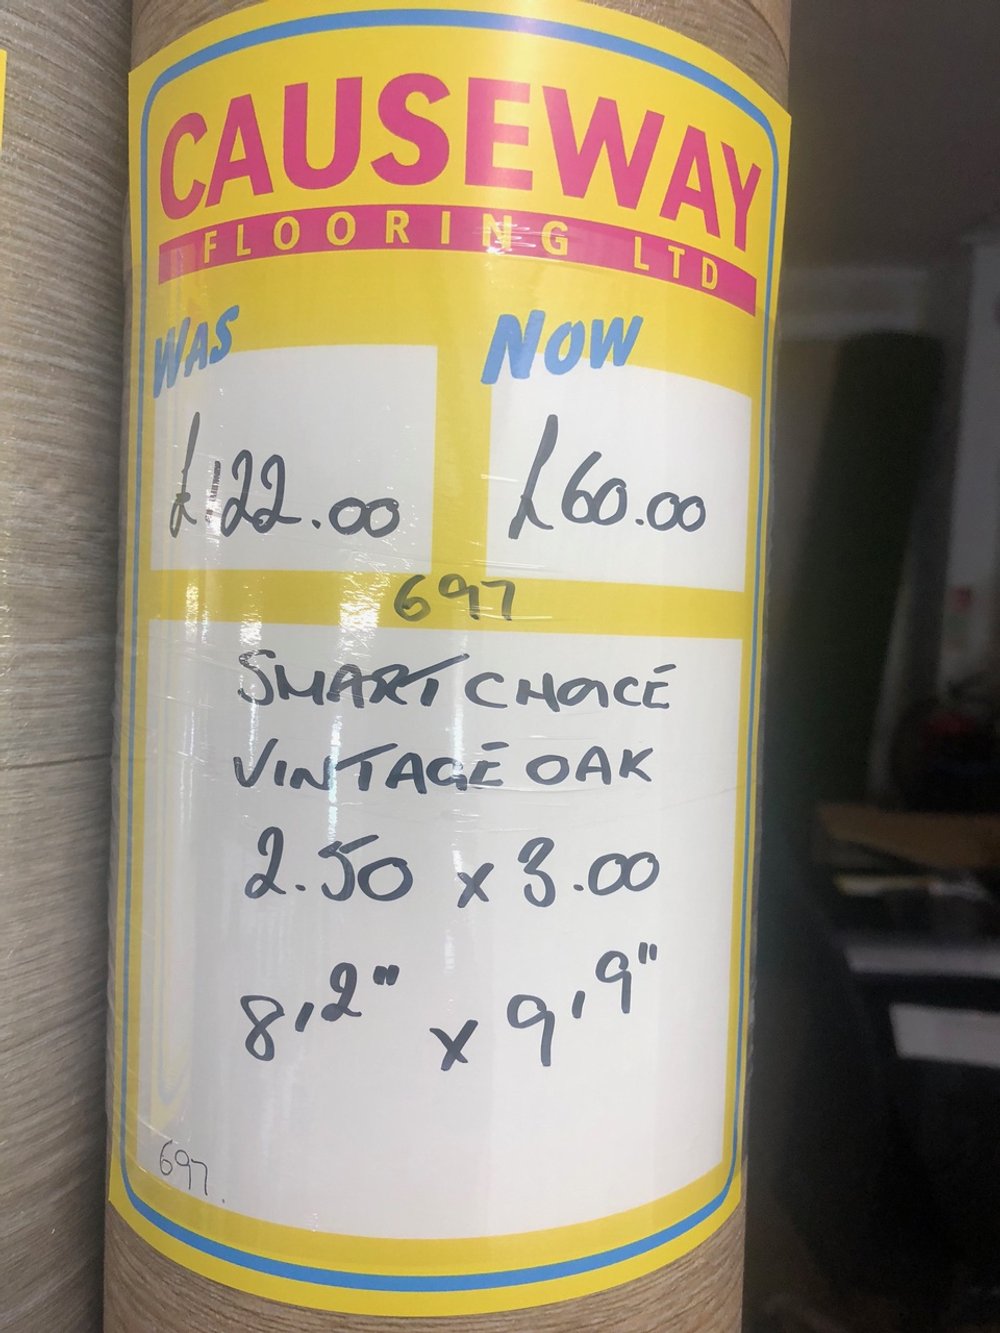 CAUSEWAY
FLOORING LTD
WAS NOW
£122.00 £60.00
697
SMART CHOICE
VINTAGE OAK
2.50 x 3.00
8'2" x 9'9"
697.